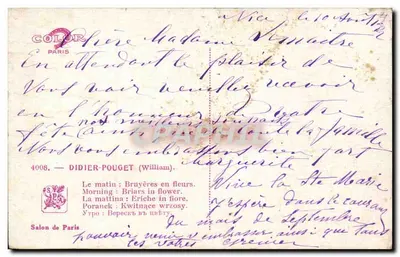 Nice, le 10 Août
Chère Madame Lemaitre
COLOR
PARIS
En attendant le plaisir de
Vous voir veuillez recevoir
en l'honneur de Votre
fête nos meilleurs souhaits
ainsi que toute la famille
Nous vous embrassons bien fort
Marguerite
4008. — DIDIER-POUGET (William).
Le matin : Bruyères en fleurs.
Morning : Briars in flower.
La mattina : Eriche in fiore.
Poranek : Kwitnące wrzosy.
Утро : Верескъ въ цвѣту.
Salon de Paris
Vive la Ste Marie
J'espère dans le courant
du mois de Septembre
pouvoir venir vous embrasser ainsi que tous